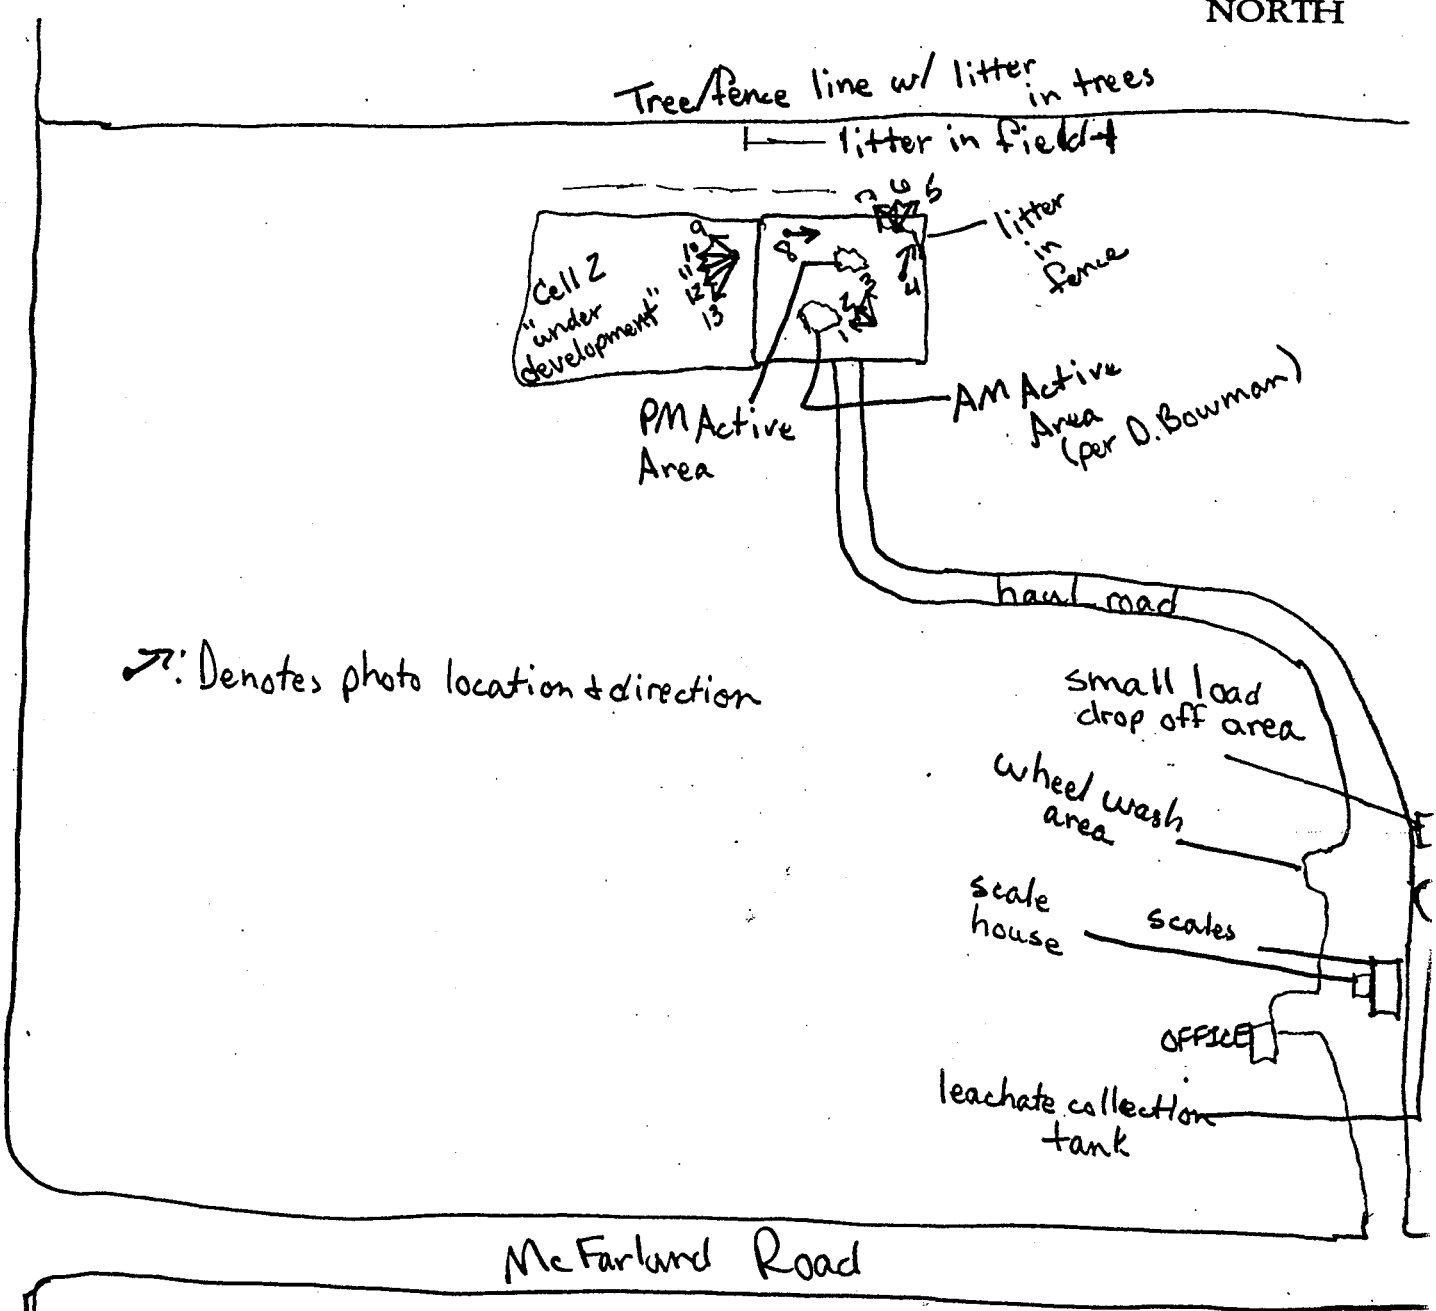 NORTH
Tree/fence line w/ litter
in trees
litter in field
7 6 5
litter
in
fence
9
10
11
12
13
8
4
3
2
1
Cell 2
"under
development"
PM Active
Area
AM Active
Area
(per D. Bowman)
haul road
: Denotes photo location & direction
small load
drop off area
wheel wash
area
scale
house
scales
OFFICE
leachate collection
tank
McFarland Road